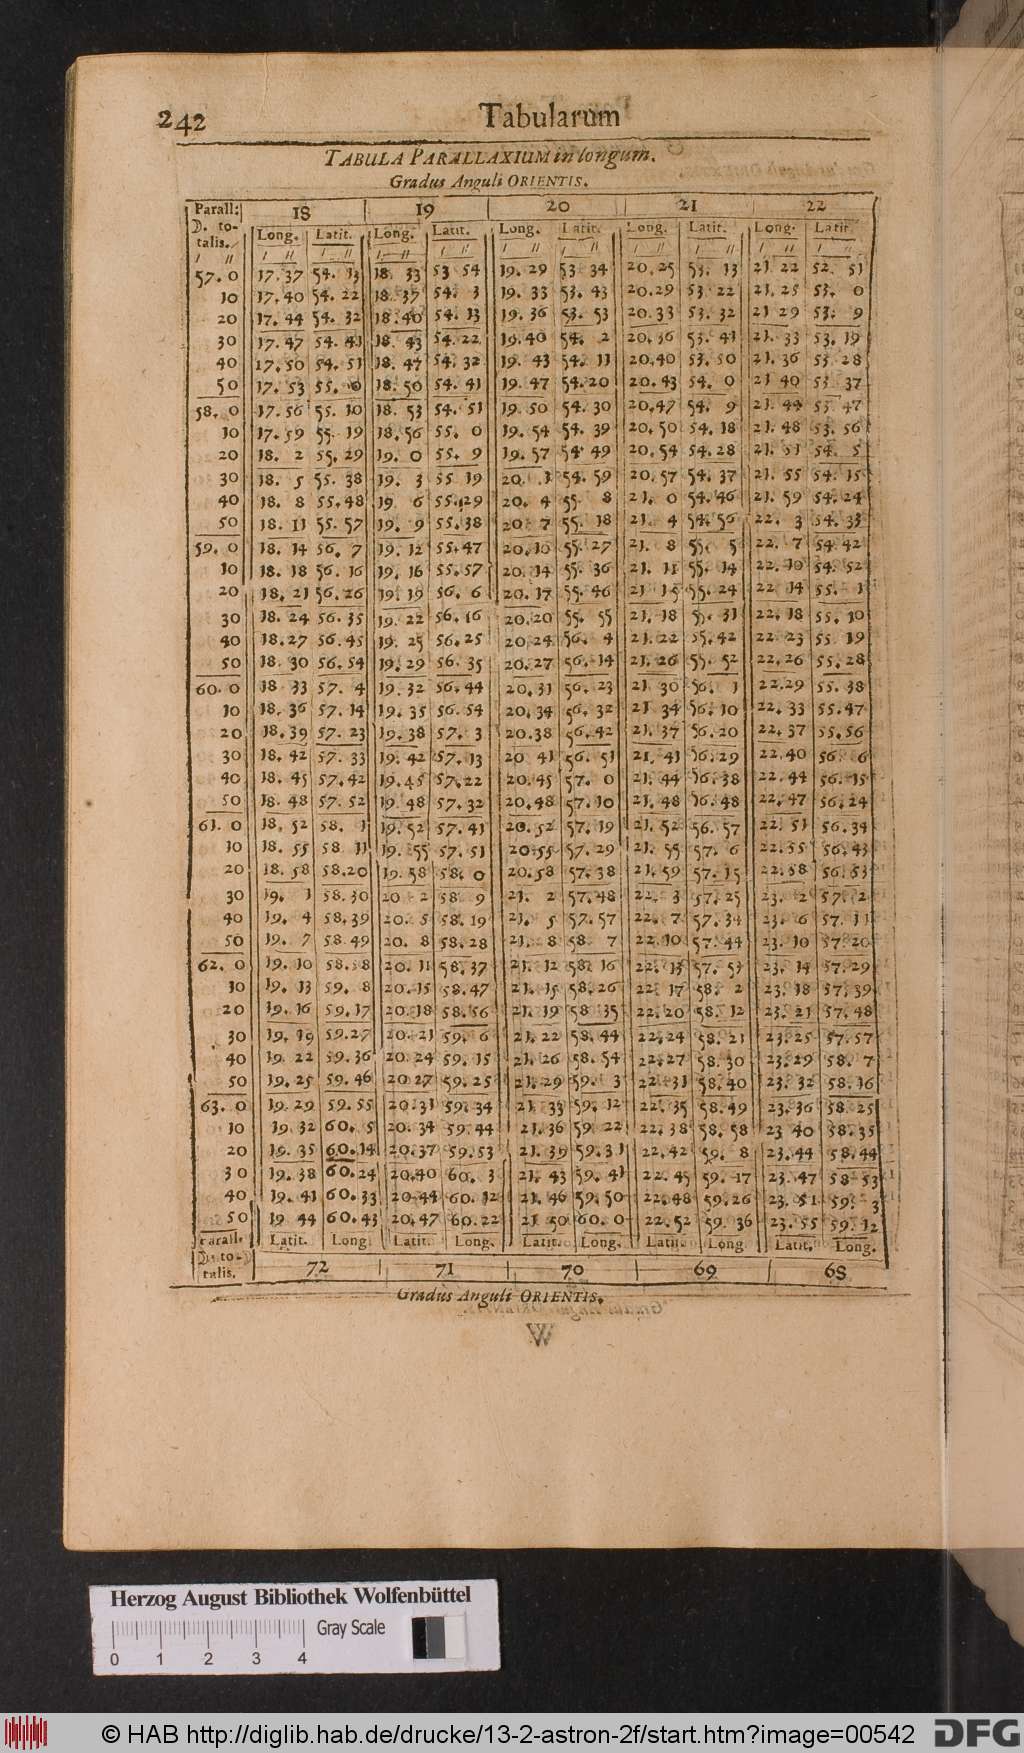 242 Tabularum
TABULA PARALLAXIUM in longum.
Gradus Anguli ORIENTIS.
Parall: 18 19 20 21 22
D. to- Long. Latit. Long. Latit. Long. Latit. Long. Latit. Long. Latit.
talis.
57. 0 17. 37 54. 13 18. 33 53 54 19. 29 53 34 20. 25 53. 13 21 22 52. 51
10 17. 40 54. 22 18. 37 54. 3 19. 33 53. 43 20. 29 53 22 21. 25 53. 0
20 17. 44 54. 32 18. 40 54. 13 19. 36 53. 53 20. 33 53. 32 21 29 53. 9
30 17. 47 54. 41 18. 43 54. 22 19. 40 54. 2 20. 36 53. 41 21. 33 53. 19
40 17. 50 54. 51 18. 47 54. 32 19. 43 54. 11 20. 40 53. 50 21. 36 53 28
50 17. 53 55. 0 18. 50 54. 41 19. 47 54. 20 20. 43 54. 0 21 40 53 37
58. 0 17. 56 55. 10 18. 53 54. 51 19. 50 54. 30 20. 47 54. 9 21. 44 53 47
10 17. 59 55. 19 18. 56 55. 0 19. 54 54. 39 20. 50 54. 18 21. 48 53. 56
20 18. 2 55. 29 19. 0 55. 9 19. 57 54. 49 20. 54 54. 28 21. 51 54. 5
30 18. 5 55. 38 19. 3 55 19 20. 1 54. 59 20. 57 54. 37 21. 55 54. 15
40 18. 8 55. 48 19 6 55. 29 20. 4 55. 8 21. 0 54. 46 21. 59 54. 24
50 18. 11 55. 57 19. 9 55. 38 20. 7 55. 18 21. 4 54. 56 22. 3 54. 33
59. 0 18. 14 56. 7 19. 12 55. 47 20. 10 55. 27 21. 8 55. 5 22. 7 54. 42
10 18. 18 56. 16 19. 16 55. 57 20. 14 55. 36 21. 11 55. 14 22. 10 54. 52
20 18. 21 56. 26 19. 19 56. 6 20. 17 55. 46 21 15 55. 24 22 14 55. 1
30 18. 24 56. 35 19. 22 56. 16 20. 20 55. 55 21. 18 55. 31 22. 18 55. 10
40 18. 27 56. 45 19. 25 56. 25 20. 24 56. 4 21. 22 55. 42 22 23 55 19
50 18. 30 56. 54 19. 29 56. 35 20. 27 56. 14 21. 26 55. 52 22. 26 55. 28
60. 0 18 33 57. 4 19. 32 56. 44 20. 31 56. 23 21 30 56. 1 22. 29 55. 38
10 18. 36 57. 14 19. 35 56. 54 20. 34 56. 32 21 34 56. 10 22. 33 55. 47
20 18. 39 57. 23 19. 38 57. 3 20. 38 56. 42 21. 37 56. 20 22. 37 55. 56
30 18. 42 57. 33 19. 42 57. 13 20 41 56. 51 21. 41 56. 29 22. 40 56. 6
40 18. 45 57. 42 19. 45 57. 22 20. 45 57. 0 21. 44 56. 38 22. 44 56. 15
50 18. 48 57. 52 19. 48 57. 32 20. 48 57. 10 21. 48 56. 48 22. 47 56. 24
61. 0 18. 52 58. 1 19. 52 57. 41 20. 52 57. 19 21. 52 56. 57 22. 51 56. 34
10 18. 55 58 11 19. 55 57. 51 20. 55 57. 29 21. 55 57. 6 22. 55 56. 43
20 18. 58 58. 20 19. 58 58. 0 20. 58 57. 38 21. 59 57. 15 22. 58 56. 53
30 19. 1 58. 30 20 2 58 9 21. 2 57. 48 22. 3 57. 25 23. 2 57. 2
40 19. 4 58. 39 20. 5 58. 19 21. 5 57. 57 22. 7 57. 34 23. 6 57. 11
50 19. 7 58. 49 20. 8 58. 28 21. 8 58. 7 22. 10 57. 44 23. 10 57. 20
62. 0 19. 10 58. 58 20. 11 58. 37 21. 12 58. 16 22. 13 57. 53 23. 14 57. 29
10 19. 13 59. 8 20. 15 58. 47 21. 15 58. 26 22. 17 58. 2 23. 18 57. 39
20 19. 16 59. 17 20. 18 58. 56 21. 19 58 35 22. 20 58. 12 23. 21 57. 48
30 19. 19 59. 27 20. 21 59. 6 21. 22 58. 44 22. 24 58. 21 23. 25 57. 57
40 19. 22 59. 36 20. 24 59. 15 21. 26 58. 54 22. 27 58. 30 23. 29 58. 7
50 19. 25 59. 46 20 27 59. 25 21. 29 59. 3 22. 31 58. 40 23. 32 58. 16
63. 0 19. 29 59. 55 20. 31 59. 34 21. 33 59. 12 22. 35 58. 49 23. 36 58. 25
10 19. 32 60. 5 20. 34 59. 44 21. 36 59 22 22. 38 58. 58 23 40 58. 35
20 19. 35 60. 14 20. 37 59. 53 21. 39 59. 31 22. 42 59. 8 23. 44 58. 44
30 19. 38 60. 24 20. 40 60. 3 21. 43 59. 41 22. 45 59. 17 23. 47 58 53
40 19. 41 60. 33 20. 44 60. 12 21. 46 59. 50 22. 48 59. 26 23. 51 59. 3
50 19 44 60. 43 20. 47 60. 22 21. 50 60. 0 22. 52 59. 36 23. 55 59. 12
Parall. Latit. Long. Latit. Long. Latit. Long. Latit. Long Latit. Long.
D. to-
talis. 72 71 70 69 68
Gradus Anguli ORIENTIS.
W
Herzog August Bibliothek Wolfenbüttel
Gray Scale
0 1 2 3 4
© HAB http://diglib.hab.de/drucke/13-2-astron-2f/start.htm?image=00542 DFG